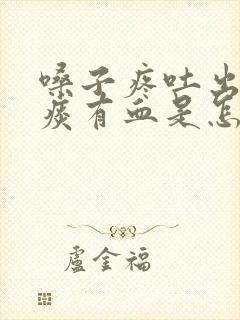 嗓子疼吐出
痰有血是怎
盧金福